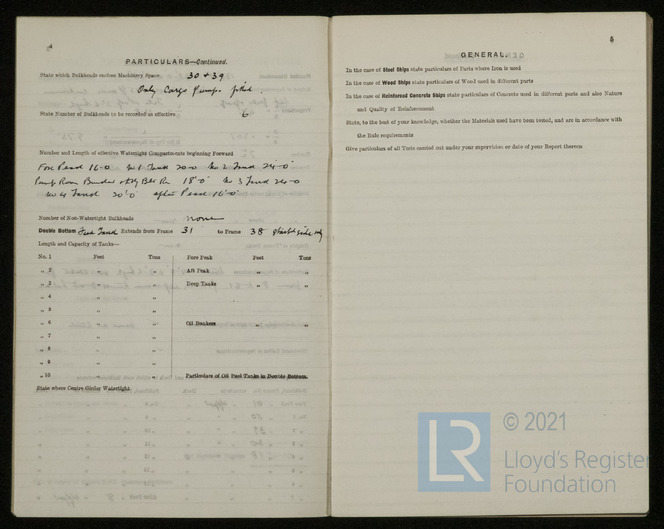 4
PARTICULARS—Continued.
State which Bulkheads enclose Machinery Space 30 & 39
Only Cargo Pumps fitted.
State Number of Bulkheads to be recorded as effective 6
Number and Length of effective Watertight Compartments beginning Forward
Fore Peak 16-0 No 1 Tank 20-0 No 2 Tank 24-0
Pump Room 18'0" No 3 Tank 24-0
No 4 Tank 20'0 After Peak 16'0
Number of Not-Watertight Bulkheads none
Double Bottom Extends from Frame 31 to Frame 38
Length and Capacity of Tanks—
No. 1 Feet Tons Fore Peak Feet Tons
„ 2 „ „ Aft Peak „ „
„ 3 „ „ Deep Tanks „ „
„ 4 „ „
„ 5 „ „
„ 6 „ „ Oil Bunkers „ „
„ 7 „ „
„ 8 „ „
„ 9 „ „
„ 10 „ „ Particulars of Oil Fuel Tanks in Double Bottom.
State where Centre Girder Watertight
5
GENERAL.
In the case of Steel Ships state particulars of Parts where Iron is used
In the case of Wood Ships state particulars of Wood used in different parts
In the case of Reinforced Concrete Ships state particulars of Concrete used in different parts and also Nature
and Quality of Reinforcement
State, to the best of your knowledge, whether the Materials used have been tested, and are in accordance with
the Rule requirements
Give particulars of all Tests carried out under your supervision or date of your Report thereon
LR
© 2021
Lloyd's Register
Foundation